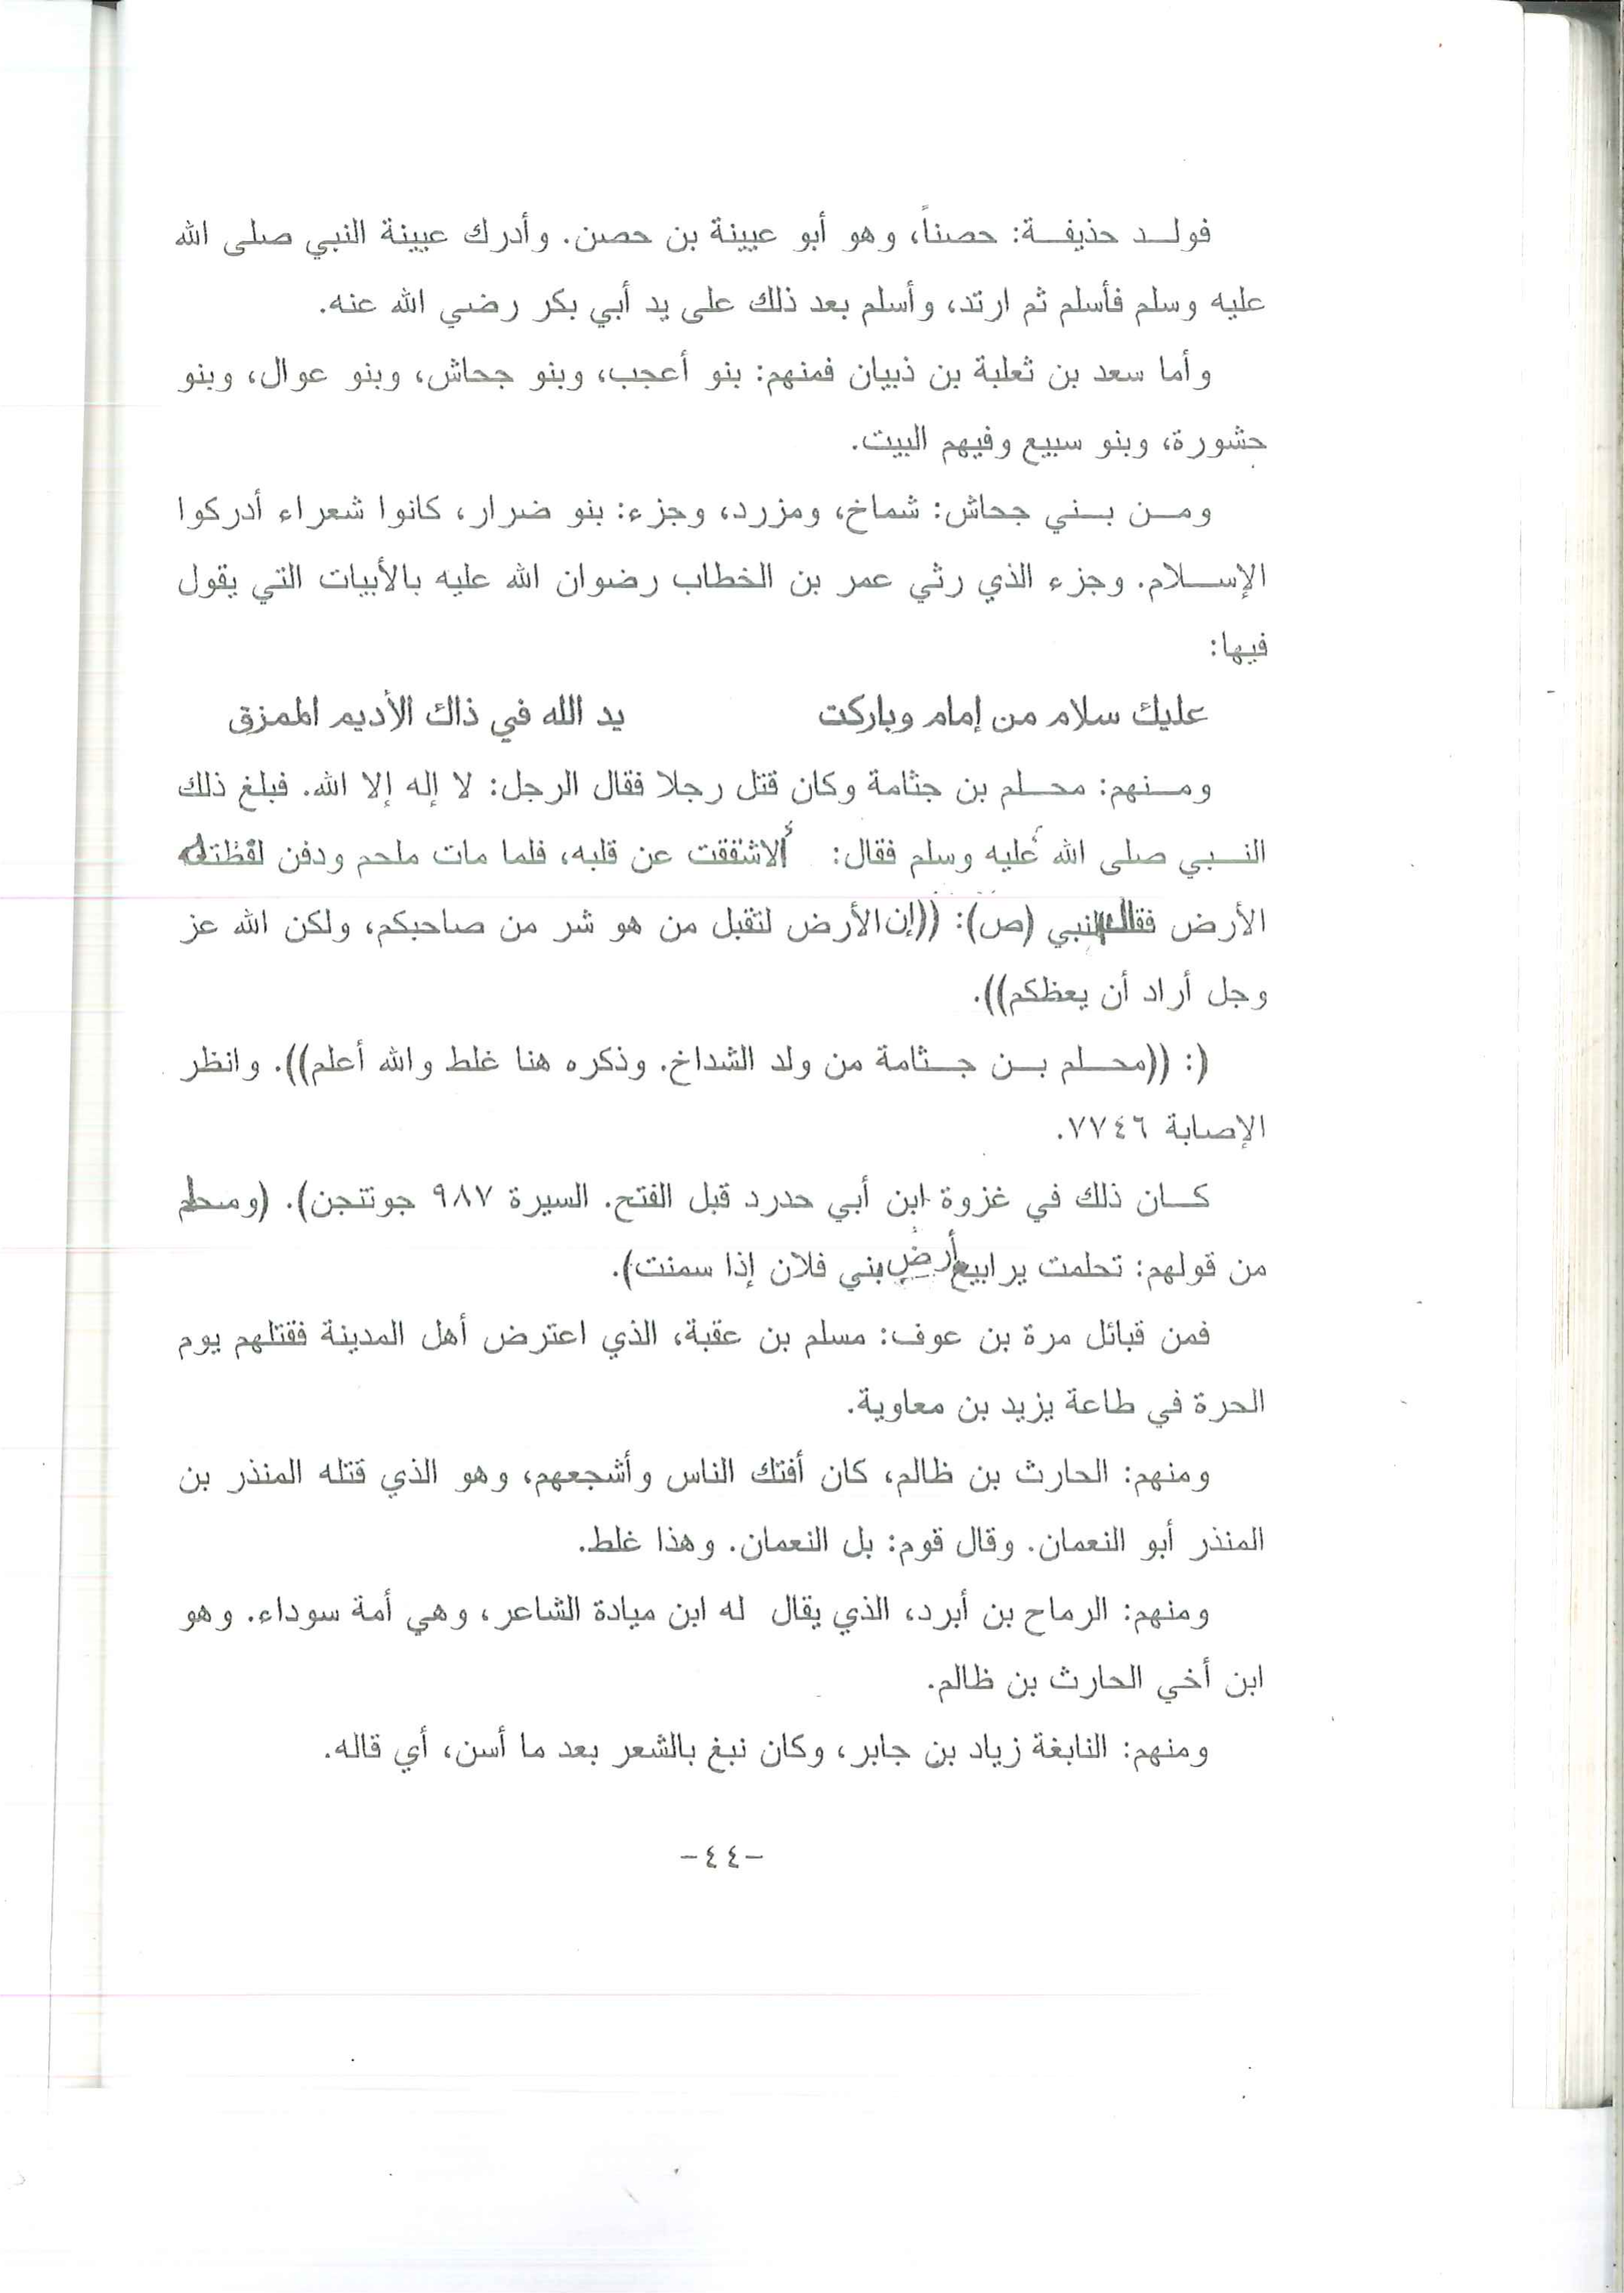 فولد حذيفة: حصناً، وهو أبو عيينة بن حصن. وأدرك عيينة النبي صلى الله
عليه وسلم فأسلم ثم ارتد، وأسلم بعد ذلك على يد أبي بكر رضي الله عنه.
وأما سعد بن ثعلبة بن ذبيان فمنهم: بنو أعجب، وبنو جحاش، وبنو عوال، وبنو
حشورة، وبنو سبيع وفيهم البيت.
ومن بني جحاش: شماخ، ومزرد، وجزء: بنو ضرار، كانوا شعراء أدركوا
الإسلام. وجزء الذي رثي عمر بن الخطاب رضوان الله عليه بالأبيات التي يقول
فيها:
عليك سلام من إمام وباركت يد الله في ذاك الأديم الممزق
ومنهم: محلم بن جثامة وكان قتل رجلا فقال الرجل: لا إله إلا الله. فبلغ ذلك
النبي صلى الله عليه وسلم فقال: ألاشققت عن قلبه، فلما مات ملحم ودفن لفظته
الأرض فقال النبي (ص): ((إن الأرض لتقبل من هو شر من صاحبكم، ولكن الله عز
وجل أراد أن يعظكم)).
(: ((محلم بن جثامة من ولد الشداخ. وذكره هنا غلط والله أعلم)). وانظر
الإصابة ٧٧٤٦.
كان ذلك في غزوة ابن أبي حدرد قبل الفتح. السيرة ٩٨٧ جوتنجن). (ومحلم
من قولهم: تحلمت يرابيع أرض بني فلان إذا سمنت).
فمن قبائل مرة بن عوف: مسلم بن عقبة، الذي اعترض أهل المدينة فقتلهم يوم
الحرة في طاعة يزيد بن معاوية.
ومنهم: الحارث بن ظالم، كان أفتك الناس وأشجعهم، وهو الذي قتله المنذر بن
المنذر أبو النعمان. وقال قوم: بل النعمان. وهذا غلط.
ومنهم: الرماح بن أبرد، الذي يقال له ابن ميادة الشاعر، وهي أمة سوداء. وهو
ابن أخي الحارث بن ظالم.
ومنهم: النابغة زياد بن جابر، وكان نبغ بالشعر بعد ما أسن، أي قاله.
-٤٤-